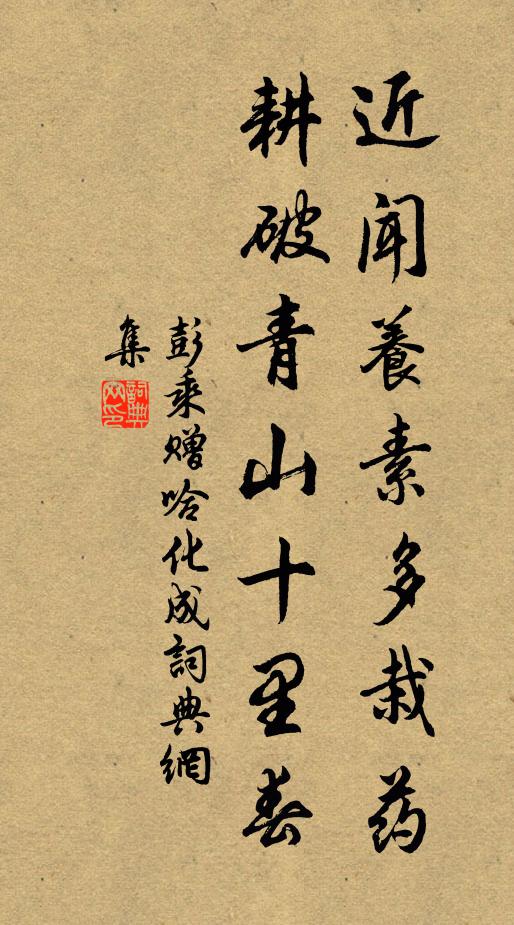 近闻養素多栽药
耕破青山十里春
彭乘赠哈化成詞典網
集
詞典网印